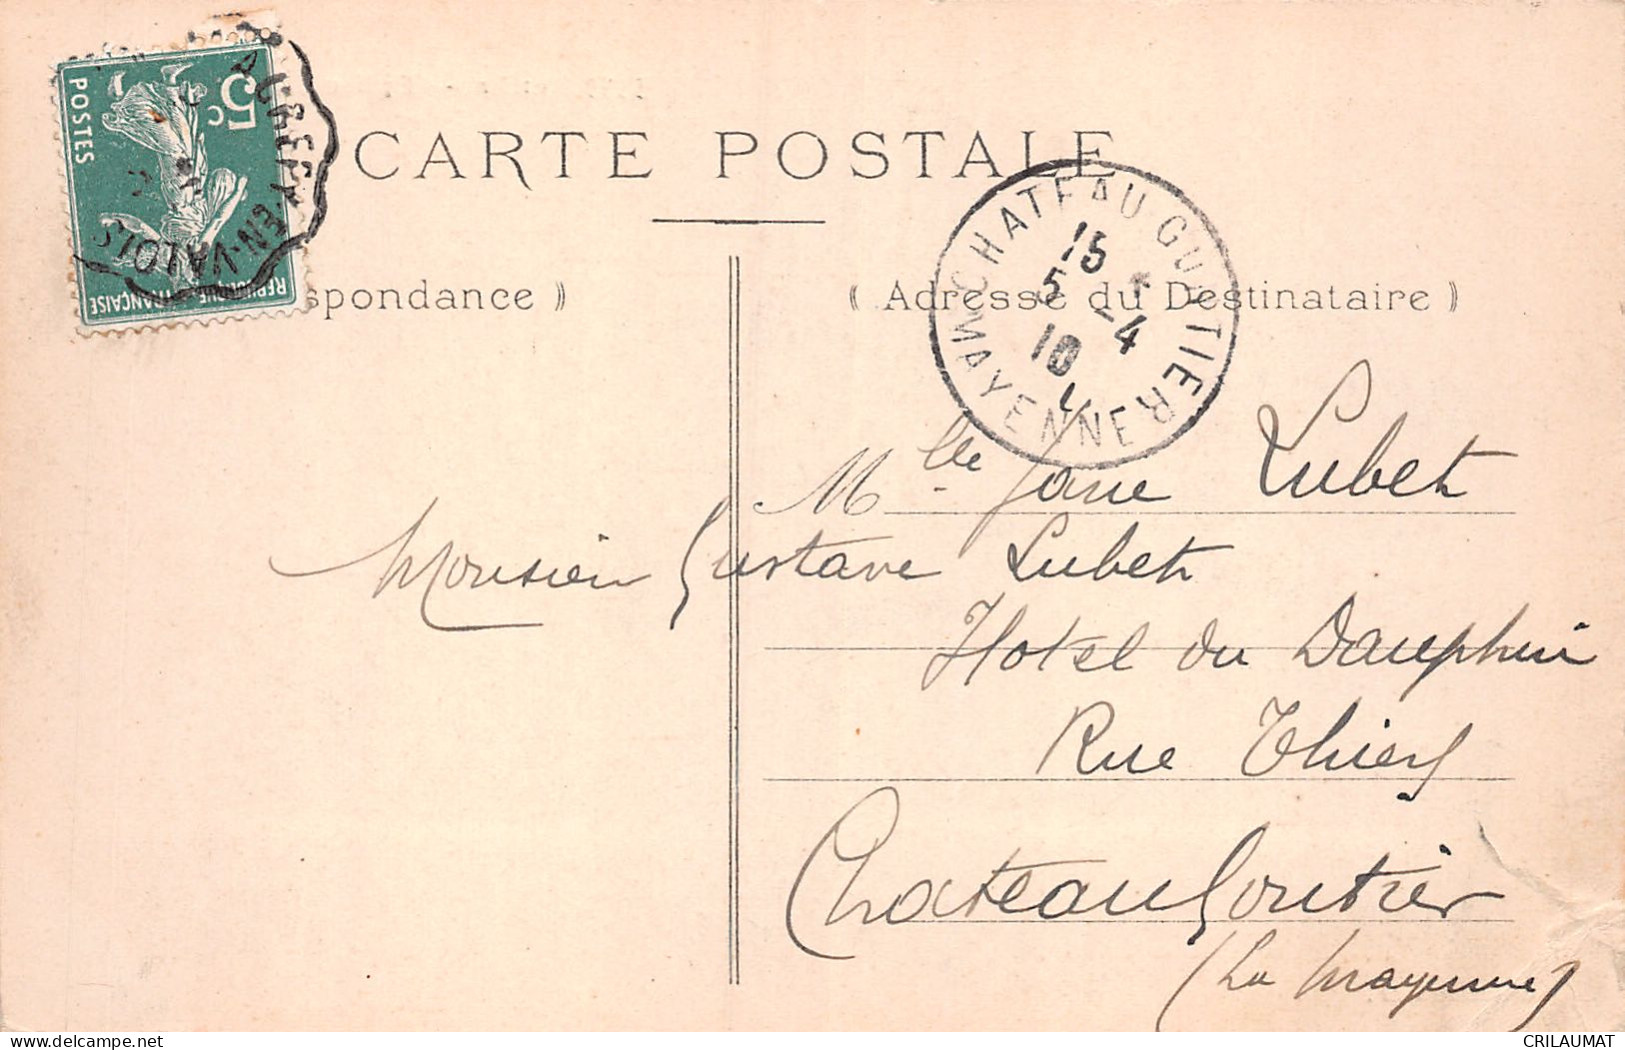 5c
POSTES
REPUBLIQUE FRANÇAISE
CREPY-EN-VALOIS
CARTE POSTALE
spondance ⟫
⟪ Adresse du Destinataire ⟫
CHATEAU-GONTIER
MAYENNE
15
5 -4
10
Mlle Jane Lubet
Monsieur Gustave Lubet
Hotel du Dauphin
Rue Thiers
Chateau Gontier
(La Mayenne)
CRILAUMAT